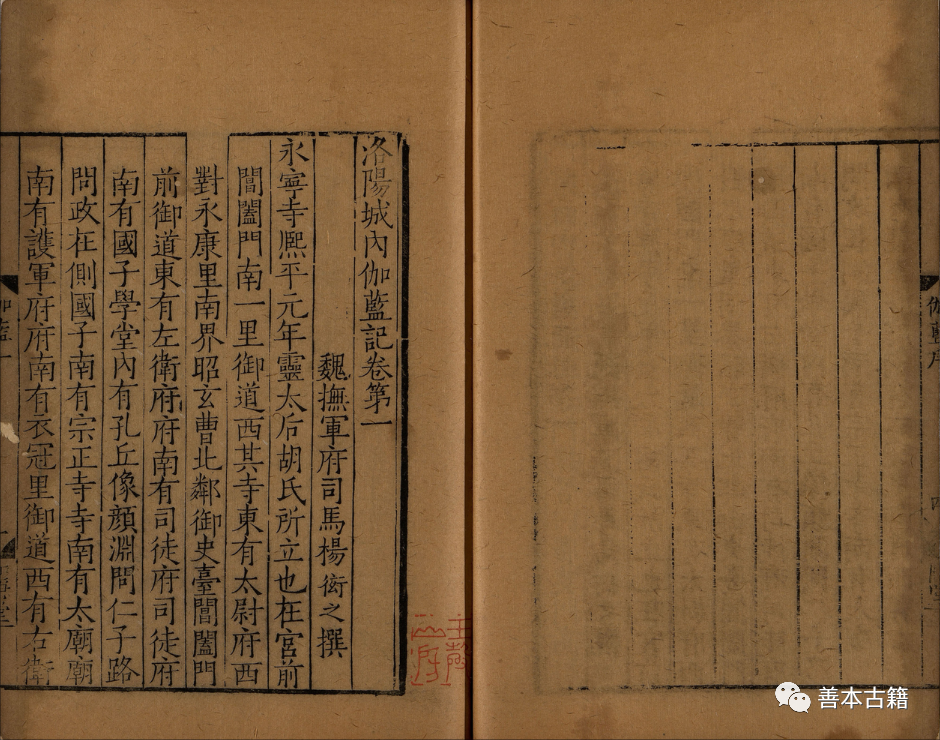 洛陽城內伽藍記卷第一
魏撫軍府司馬楊衒之撰
永寧寺熈平元年靈太后胡氏所立也在宮前
閶闔門南一里御道西其寺東有太尉府西
對永康里南界昭玄曹北鄰御史臺閶闔門
前御道東有左衛府府南有司徒府司徒府
南有國子學堂內有孔丘像顏淵問仁子路
問政在側國子南有宗正寺寺南有太廟廟
南有護軍府府南有衣冠里御道西有右衛
善本古籍